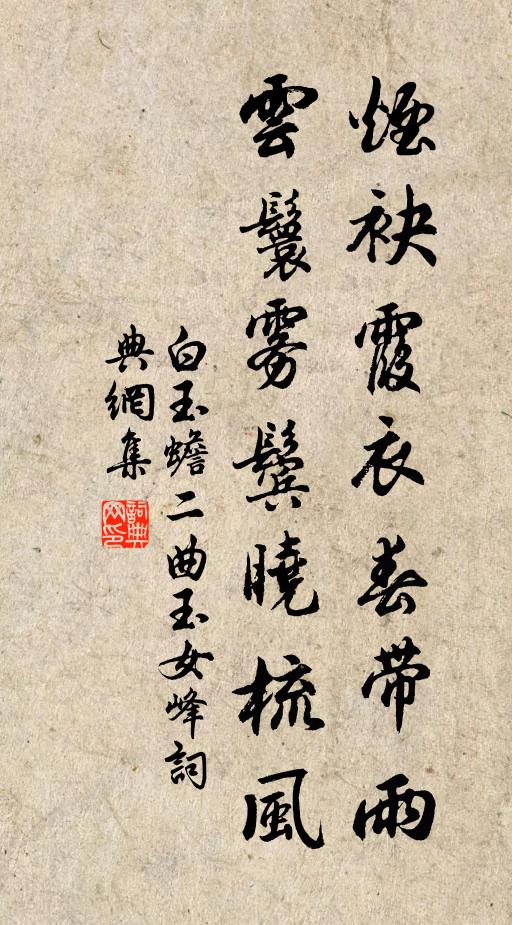 煙袂霞衣春帶雨
雲鬟霧鬢曉梳風
白玉蟾二曲玉女峰詞
典網集
詞典
网印